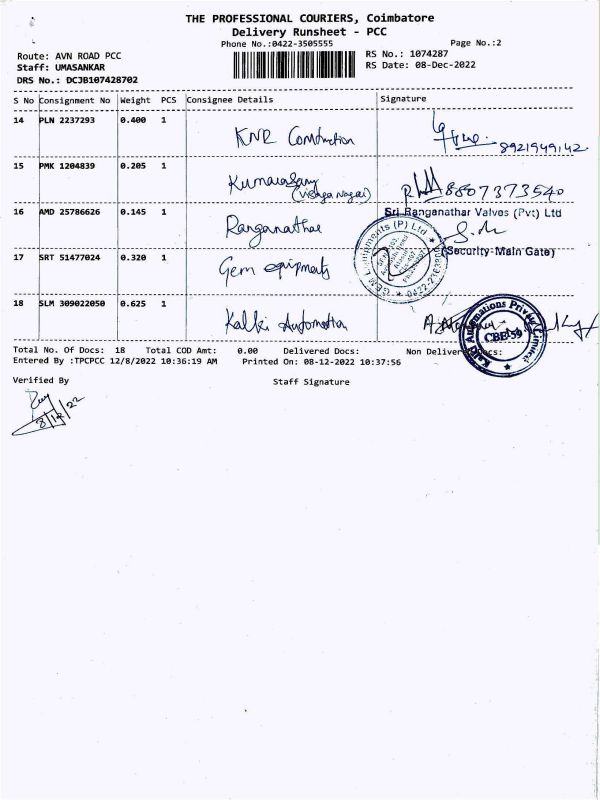 THE PROFESSIONAL COURIERS, Coimbatore
Delivery Runsheet - PCC
Phone No.:0422-3505555
Page No.:2
Route: AVN ROAD PCC
RS No.: 1074287
Staff: UMASANKAR
RS Date: 08-Dec-2022
DRS No.: DCJB107428702
S No Consignment No Weight PCS Consignee Details Signature
14 PLN 2237293 0.400 1 KNR Construction 8921949142
15 PMK 1204839 0.205 1 Kumarasamy 8807373540
16 AMD 25786626 0.145 1 Ranganathar Sri Ranganathar Valves (Pvt) Ltd
(Security-Main Gate)
17 SRT 51477024 0.320 1 Gem equipments
18 SLM 309022050 0.625 1 Kalki Automation
CBE-59
Total No. Of Docs: 18 Total COD Amt: 0.00 Delivered Docs: Non Delivered Docs:
Entered By :TPCPCC 12/8/2022 10:36:19 AM Printed On: 08-12-2022 10:37:56
Verified By Staff Signature
8/12/22